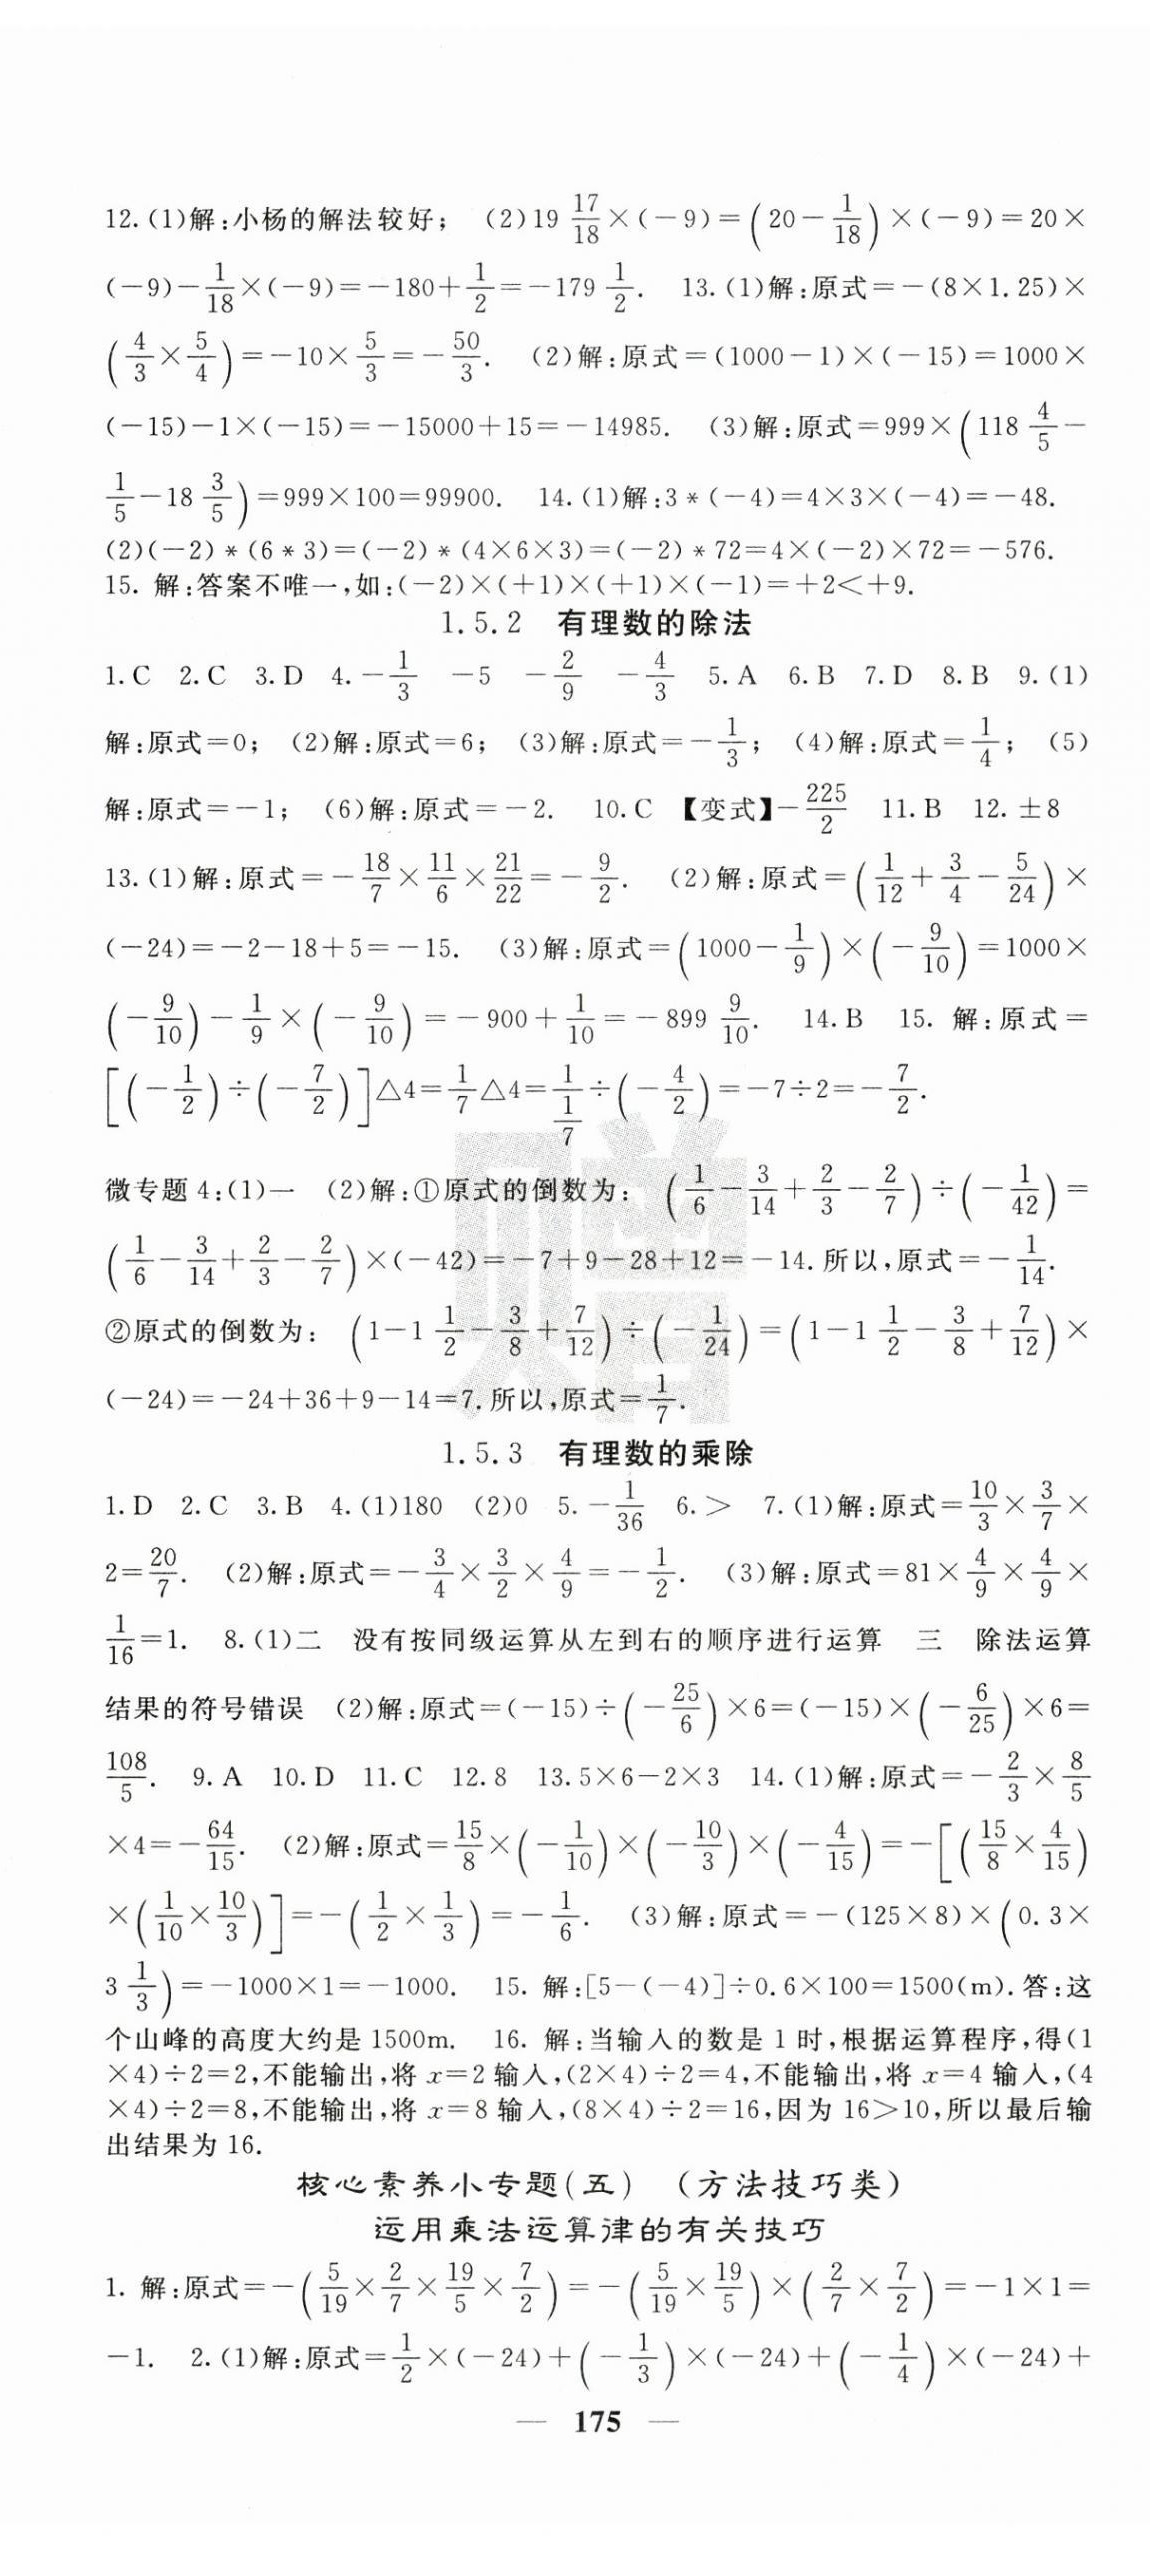 12.(1)解:小杨的解法较好; (2)19 17/18×(-9)=(20-1/18)×(-9)=20×
(-9)-1/18×(-9)=-180+1/2=-179 1/2. 13.(1)解:原式=-(8×1.25)×
(4/3×5/4)=-10×5/3=-50/3. (2)解:原式=(1000-1)×(-15)=1000×
(-15)-1×(-15)=-15000+15=-14985. (3)解:原式=999×(118 4/5-
1/5-18 3/5)=999×100=99900. 14.(1)解:3*(-4)=4×3×(-4)=-48.
(2)(-2)*(6*3)=(-2)*(4×6×3)=(-2)*72=4×(-2)×72=-576.
15. 解:答案不唯一,如:(-2)×(+1)×(+1)×(-1)=+2<+9.
1.5.2 有理数的除法
1.C 2.C 3.D 4.-1/3 -5 -2/9 -4/3 5.A 6.B 7.D 8.B 9.(1)
解:原式=0; (2)解:原式=6; (3)解:原式=-1/3; (4)解:原式=1/4; (5)
解:原式=-1; (6)解:原式=-2. 10.C 【变式】-225/2 11.B 12.±8
13.(1)解:原式=-18/7×11/6×21/22=-9/2. (2)解:原式=(1/12+3/4-5/24)×
(-24)=-2-18+5=-15. (3)解:原式=(1000-1/9)×(-9/10)=1000×
(-9/10)-1/9×(-9/10)=-900+1/10=-899 9/10. 14.B 15. 解:原式=
[(-1/2)÷(-7/2)]△4=1/7△4=1/(1/7)÷(-4/2)=-7÷2=-7/2.
微专题4:(1)一 (2)解:①原式的倒数为: (1/6-3/14+2/3-2/7)÷(-1/42)=
(1/6-3/14+2/3-2/7)×(-42)=-7+9-28+12=-14.所以,原式=-1/14.
②原式的倒数为: (1-1 1/2-3/8+7/12)÷(-1/24)=(1-1 1/2-3/8+7/12)×
(-24)=-24+36+9-14=7.所以,原式=1/7.
1.5.3 有理数的乘除
1.D 2.C 3.B 4.(1)180 (2)0 5.-1/36 6.> 7.(1)解:原式=10/3×3/7×
2=20/7. (2)解:原式=-3/4×3/2×4/9=-1/2. (3)解:原式=81×4/9×4/9×
1/16=1. 8.(1)二 没有按同级运算从左到右的顺序进行运算 三 除法运算
结果的符号错误 (2)解:原式=(-15)÷(-25/6)×6=(-15)×(-6/25)×6=
108/5. 9.A 10.D 11.C 12.8 13.5×6-2×3 14.(1)解:原式=-2/3×8/5
×4=-64/15. (2)解:原式=15/8×(-1/10)×(-10/3)×(-4/15)=-[(15/8×4/15)
×(1/10×10/3)]=-(1/2×1/3)=-1/6. (3)解:原式=-(125×8)×(0.3×
3 1/3)=-1000×1=-1000. 15. 解:[5-(-4)]÷0.6×100=1500(m).答:这
个山峰的高度大约是1500m. 16. 解:当输入的数是1时,根据运算程序,得(1
×4)÷2=2,不能输出,将x=2输入,(2×4)÷2=4,不能输出,将x=4输入,(4
×4)÷2=8,不能输出,将x=8输入,(8×4)÷2=16,因为16>10,所以最后输
出结果为16.
核心素养小专题(五) (方法技巧类)
运用乘法运算律的有关技巧
1. 解:原式=-(5/19×2/7×19/5×7/2)=-(5/19×19/5)×(2/7×7/2)=-1×1=
-1. 2.(1)解:原式=1/2×(-24)+(-1/3)×(-24)+(-1/4)×(-24)+
— 175 —
赠